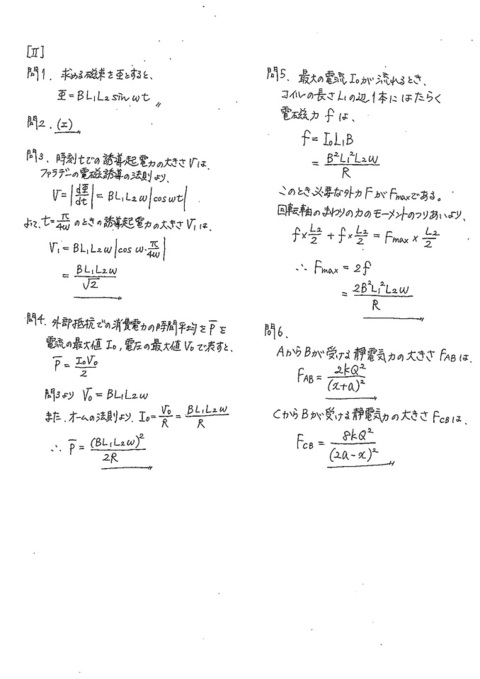 [Ⅱ]
問1. 求める磁束をΦとすると、
Φ = BL₁L₂ sin ωt 〃
問2. (エ)
問3. 時刻tでの誘導起電力の大きさVは、
ファラデーの電磁誘導の法則より、
V = |dΦ/dt| = BL₁L₂ω|cos ωt|
よって、t = π/4ω のときの誘導起電力の大きさV₁は、
V₁ = BL₁L₂ω|cos ω・π/4ω|
= BL₁L₂ω/√2
問4. 外部抵抗での消費電力の時間平均をP̄を
電流の最大値I₀, 電圧の最大値V₀で表すと、
P̄ = I₀V₀/2
問3より V₀ = BL₁L₂ω
また、オームの法則より、I₀ = V₀/R = BL₁L₂ω/R
∴ P̄ = (BL₁L₂ω)²/2R
問5. 最大の電流I₀が流れるとき、
コイルの長さL₁の辺1本にはたらく
電磁力fは、
f = I₀L₁B
= B²L₁²L₂ω/R
このとき必要な外力FがFmaxである。
回転軸のまわりの力のモーメントのつりあいより、
f×L₂/2 + f×L₂/2 = Fmax × L₂/2
∴ Fmax = 2f
= 2B²L₁²L₂ω/R
問6.
AからBが受ける静電気力の大きさFABは、
FAB = 2kQ²/(x+a)²
CからBが受ける静電気力の大きさFCBは、
FCB = 8kQ²/(2a-x)²